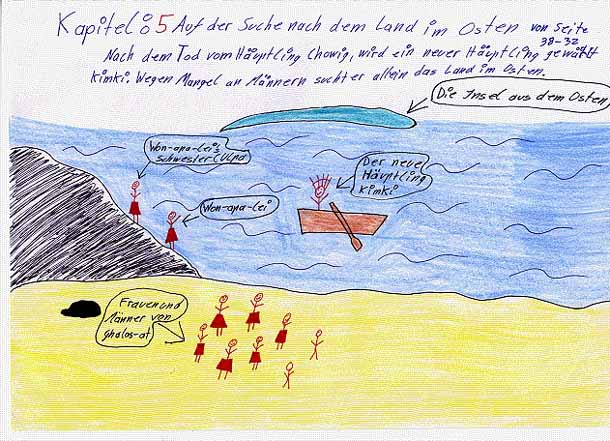 Kapitel: 5 Auf der Suche nach dem Land im Osten von Seite
38-32
Nach dem Tod vom Häuptling Chowig, wird ein neuer Häuptling gewählt
Kimki. Wegen Mangel an Männern sucht er allein das Land im Osten.
Die Insel aus dem Osten
Won-apa-lei's
schwester (Ulpa
Won-apa-lei
Der neue
Häuptling
Kimki
Frauen und
Männer von
Ghalas-at